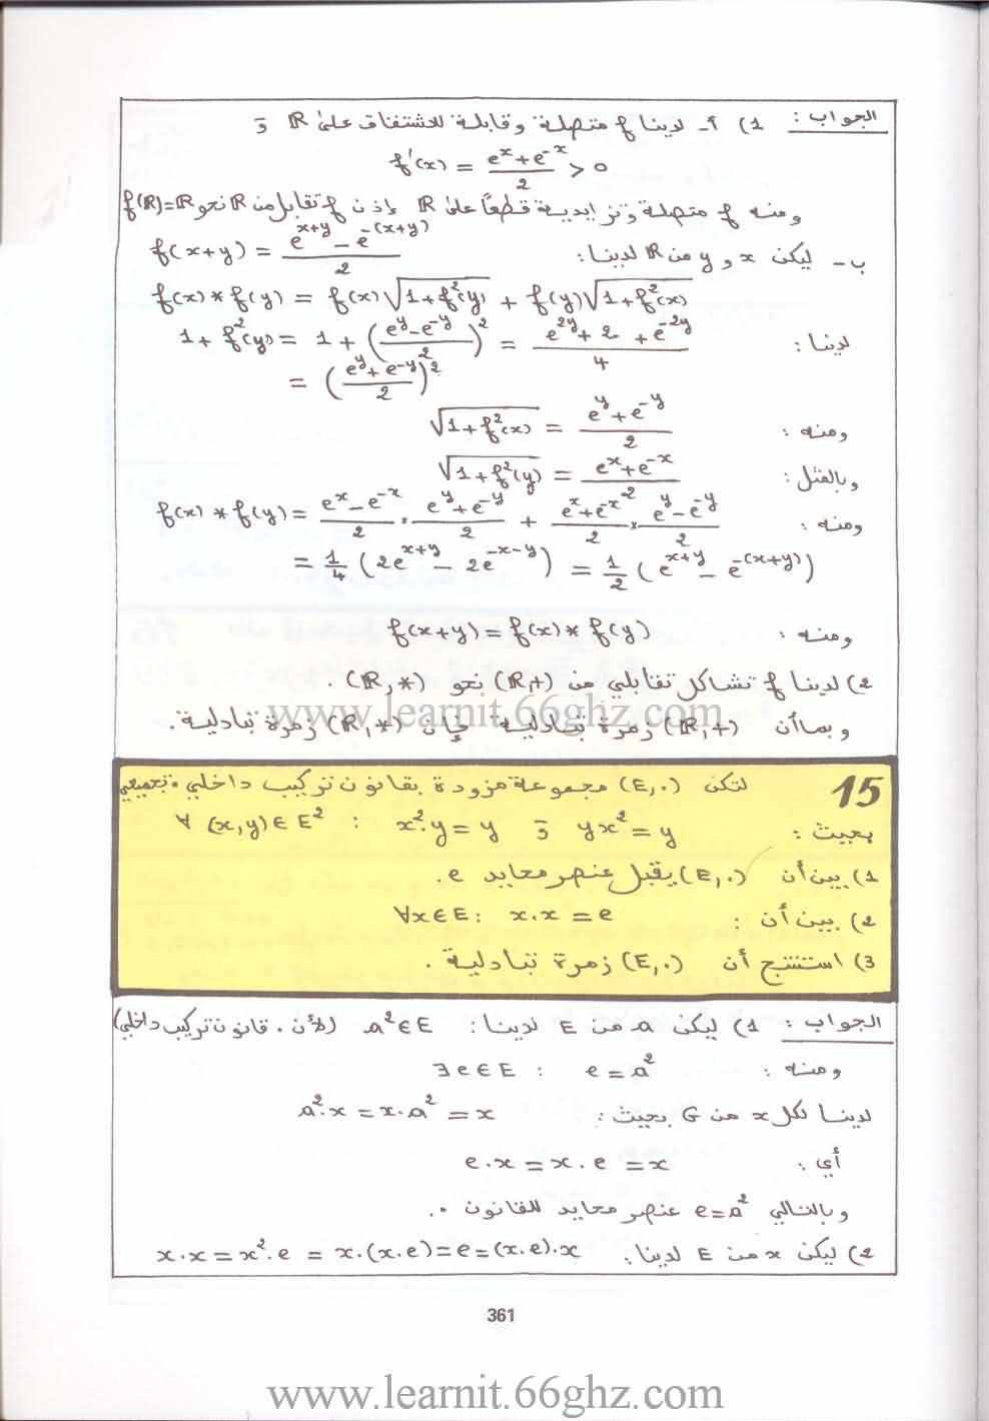 الجواب : 1) أ- لدينا f متصلة وقابلة للاشتقاق على ℝ و
f'(x) = (e^x + e^-x)/2 > 0
ومنه f متصلة وتزايدية قطعاً على ℝ إذن f تقابل من ℝ نحو f(ℝ)=ℝ
ب- ليكن x و y من ℝ لدينا : f(x+y) = (e^(x+y) - e^-(x+y))/2
f(x) * f(y) = f(x)√(1+f²(y)) + f(y)√(1+f²(x))
لدينا : 1+f²(y) = 1 + ((e^y - e^-y)/2)² = (e^2y + 2 + e^-2y)/4
= ((e^y + e^-y)/2)²
ومنه : √(1+f²(x)) = (e^y + e^-y)/2
وبالمثل : √(1+f²(y)) = (e^x + e^-x)/2
ومنه : f(x) * f(y) = (e^x - e^-x)/2 . (e^y + e^-y)/2 + (e^x + e^-x)/2 × (e^y - e^-y)/2
= 1/4 (2e^(x+y) - 2e^(-x-y)) = 1/2 (e^(x+y) - e^-(x+y))
ومنه : f(x+y) = f(x) * f(y)
2) لدينا f تشاكل تقابلي من (ℝ,+) نحو (ℝ,*) .
وبما أن (ℝ,+) زمرة تبادلية فإن (ℝ,*) زمرة تبادلية.
www.learnit.66ghz.com
15 لتكن (E,.) مجموعة مزودة بقانون تركيب داخلي تجميعي
بحيث : ∀ (x,y) ∈ E² : x².y = y و yx² = y
1) بين أن (E,.) يقبل عنصر محايد e.
2) بين أن : ∀x∈E : x.x = e
3) استنتج أن (E,.) زمرة تبادلية .
الجواب : 1) ليكن a من E لدينا : a²∈E (لأن . قانون تركيب داخلي)
ومنه : ∃e∈E : e = a²
لدينا لكل x من G بحيث : a².x = x.a² = x
أي : e.x = x.e = x
وبالتالي e=a² عنصر محايد للقانون ..
2) ليكن x من E لدينا : x.x = x².e = x.(x.e) = e = (x.e).x
361
www.learnit.66ghz.com